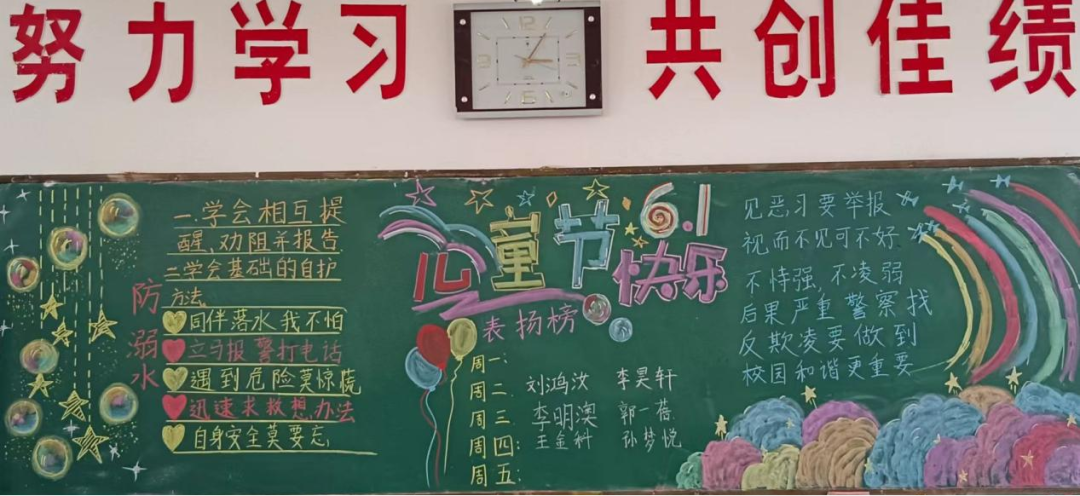 努力学习
共创佳绩
一.学会相互提
醒、劝阻并报告
二.学会基础的自护
方法
防弱水
同伴落水我不怕
立马报警打电话
遇到危险莫惊慌
迅速求救想办法
自身安全莫要忘
6.1
儿童节
快乐
表扬榜
周一:
周二: 刘鸿汝 李昊轩
周三: 李明澳 郭一蓓
周四: 王金科 孙梦悦
周五:
见恶习要举报
视而不见可不好
不恃强,不凌弱
后果严重警察找
反欺凌要做到
校园和谐更重要